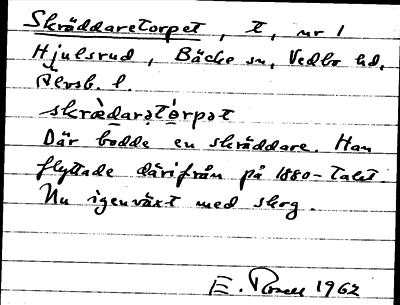 Skräddaretorpet, t, nr 1
Hjulsrud, Bäcke sn, Vedbo hd,
Älvsb. l.
skræ̀darətórpət
Där bodde en skräddare. Han
flyttade därifrån på 1880-talet.
Nu igenväxt med skog.
E. 1962